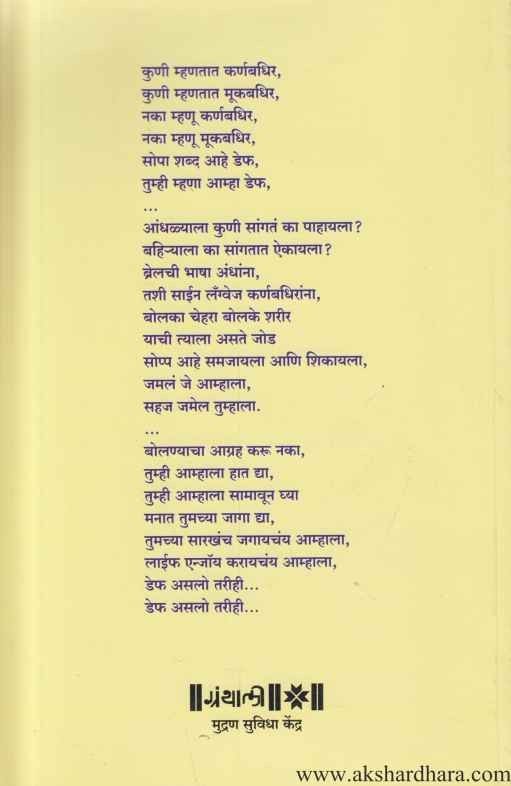 कुणी म्हणतात कर्णबधिर,
कुणी म्हणतात मूकबधिर,
नका म्हणू कर्णबधिर,
नका म्हणू मूकबधिर,
सोपा शब्द आहे डेफ,
तुम्ही म्हणा आम्हा डेफ,
...
आंधळ्याला कुणी सांगतं का पाहायला?
बहिऱ्याला का सांगतात ऐकायला?
ब्रेलची भाषा अंधांना,
तशी साईन लँग्वेज कर्णबधिरांना,
बोलका चेहरा बोलके शरीर
याची त्याला असते जोड
सोप्प आहे समजायला आणि शिकायला,
जमलं जे आम्हाला,
सहज जमेल तुम्हाला.
...
बोलण्याचा आग्रह करू नका,
तुम्ही आम्हाला हात द्या,
तुम्ही आम्हाला सामावून घ्या
मनात तुमच्या जागा द्या,
तुमच्या सारखंच जगायचंय आम्हाला,
लाईफ एन्जॉय करायचंय आम्हाला,
डेफ असलो तरीही...
डेफ असलो तरीही...
॥ग्रंथाली॥ ॥
मुद्रण सुविधा केंद्र
www.akshardhara.com